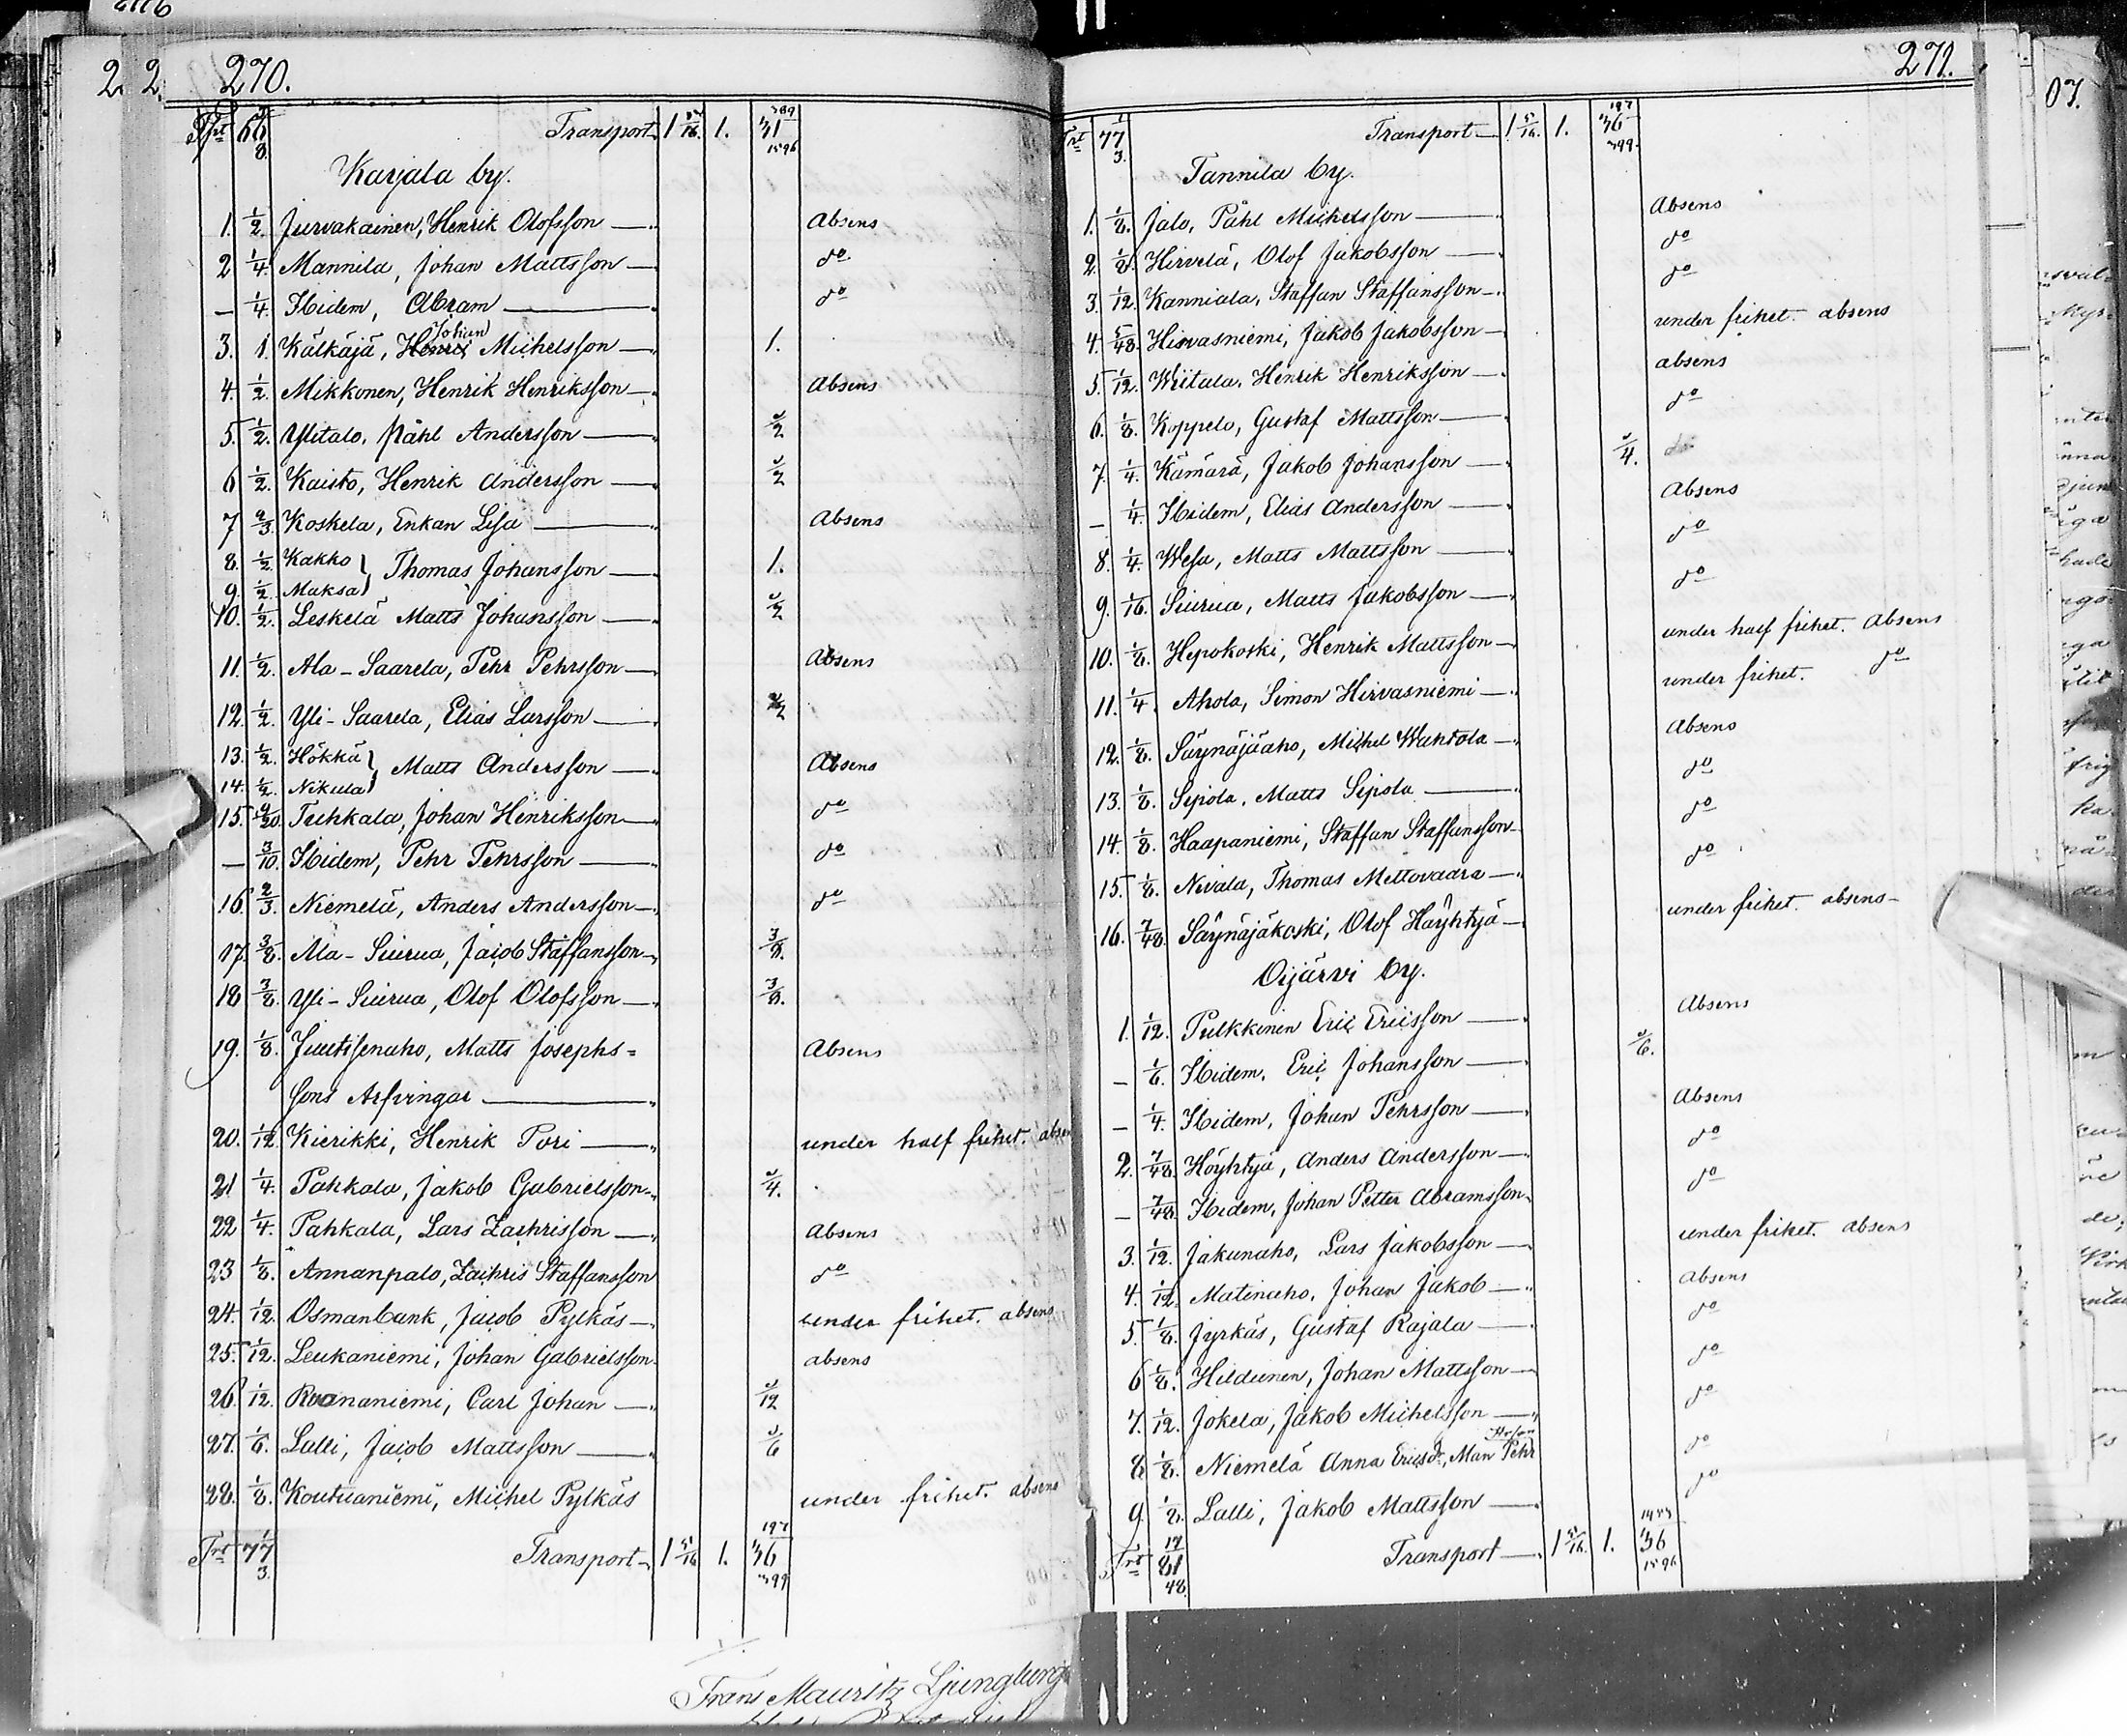 270.
Trt 66 Transport 1 5/16. 1. 31
Karjala by.
1. 1/2. Jurvakainen, Henrik Olofsson — Absens
2 1/4. Mannila, Johan Mattsson — do
— 1/4. Ibidem, Abram — do
3. 1. Kälkäjä, Johan Michelsson — 1.
4. 1/2. Mikkonen, Henrik Henriksson — Absens
5. 1/2. Ylitalo, Påhl Andersson — 1/2
6 1/2. Kaisto, Henrik Andersson — 1/2
7 2/3. Koskela, Enkan Lisa — Absens
8. 1/2. Kakko } Thomas Johansson — 1.
9. 1/2. Maksa
10. 1/2. Leskelä Matts Johansson — 1/2
11. 1/2. Ala-Saarela, Pehr Pehrsson — Absens
12. 1/2. Yli-Saarela, Elias Larsson — 1/2
13. 1/2. Hökkä } Matts Andersson — Absens
14. 1/2. Nikula
15. 9/20. Tuhkala, Johan Henriksson — do
— 3/10. Ibidem, Pehr Pehrsson — do
16. 2/3. Niemelä, Anders Andersson — do
17. 3/8. Ala-Siurua, Jacob Staffansson — 3/8.
18 3/8. Yli-Siurua, Olof Olofsson — 3/8.
19. 1/8. Juutisenaho, Matts Josephs= Absens
sons Arfvingar —
20. 1/12. Kierikki, Henrik Pori — under half frihet. absen
21 1/4. Pahkala, Jakob Gabrielsson — 1/4.
22 1/4. Pahkala, Lars Zachrisson — Absens
23 1/8. Annanpalo, Zachris Staffansson do
24. 1/12. Osmanbank, Jacob Pylkäs — under frihet. absens
25. 1/12. Leukaniemi, Johan Gabrielsson absens
26 1/12. Ruonaniemi, Carl Johan — 1/12
27. 1/6. Lalli, Jacob Mattsson — 1/6
28. 1/8. Koutuaniemi, Michel Pylkäs under frihet. absens
Trt 77 1/3. Transport 1 5/16 1. 36 197/399
Frans Mauritz Ljungberg
271.
Trt 77 1/3. Transport 1 5/16. 1. 36 197/399.
Tannila by.
1. 1/8. Jalo, Påhl Michelsson — Absens
2. 1/8. Hirvelä, Olof Jakobsson — do
3. 1/12. Kanniala, Staffan Staffansson — do
4. 5/48. Hirvasniemi, Jakob Jakobsson — under frihet. absens
5. 1/12. Wiitala, Henrik Henriksson — absens
6. 1/8. Koppelo, Gustaf Mattsson — do
7. 1/4. Kämärä, Jakob Johansson — 1/4.
— 1/4. Ibidem, Elias Andersson — Absens
8. 1/4. Wesa, Matts Mattsson — do
9. 1/16. Siurua, Matts Jakobsson — do
10. 1/8. Hepokoski, Henrik Mattsson — under half frihet. Absens
11. 1/4. Ahola, Simon Hirvasniemi — under frihet. do
12. 1/8. Säynäjäaho, Michel Wahtola — Absens
13. 1/8. Sipola, Matts Sipola — do
14. 1/8. Haapaniemi, Staffan Staffansson do
15. 1/8. Nivala, Thomas Mettovaara — do
16. 7/48. Säynäjäkoski, Olof Häyhtyä — under frihet. absens
Oijärvi by.
1. 1/12. Pulkkinen Eric Ericsson — Absens
— 1/6. Ibidem, Eric Johansson — 1/6.
— 1/4. Ibidem, Johan Pehrsson — Absens
2. 7/48. Höyhtyä, Anders Andersson — do
— 7/48. Ibidem, Johan Petter Abramsson do
3. 1/12. Jakunaho, Lars Jakobsson — under frihet. absens
4. 1/12. Matinaho, Johan Jakob — absens
5. 1/8. Jyrkäs, Gustaf Rajala — do
6 1/8. Hildunen, Johan Mattsson — do
7. 1/12. Jokela, Jakob Michelsson — do
8 1/8. Niemelä Anna Ericsdr, Man Pehr do
9. 1/8. Lalli, Jakob Mattsson — do
Trt 81 17/48. Transport — 1 5/16. 1. 36